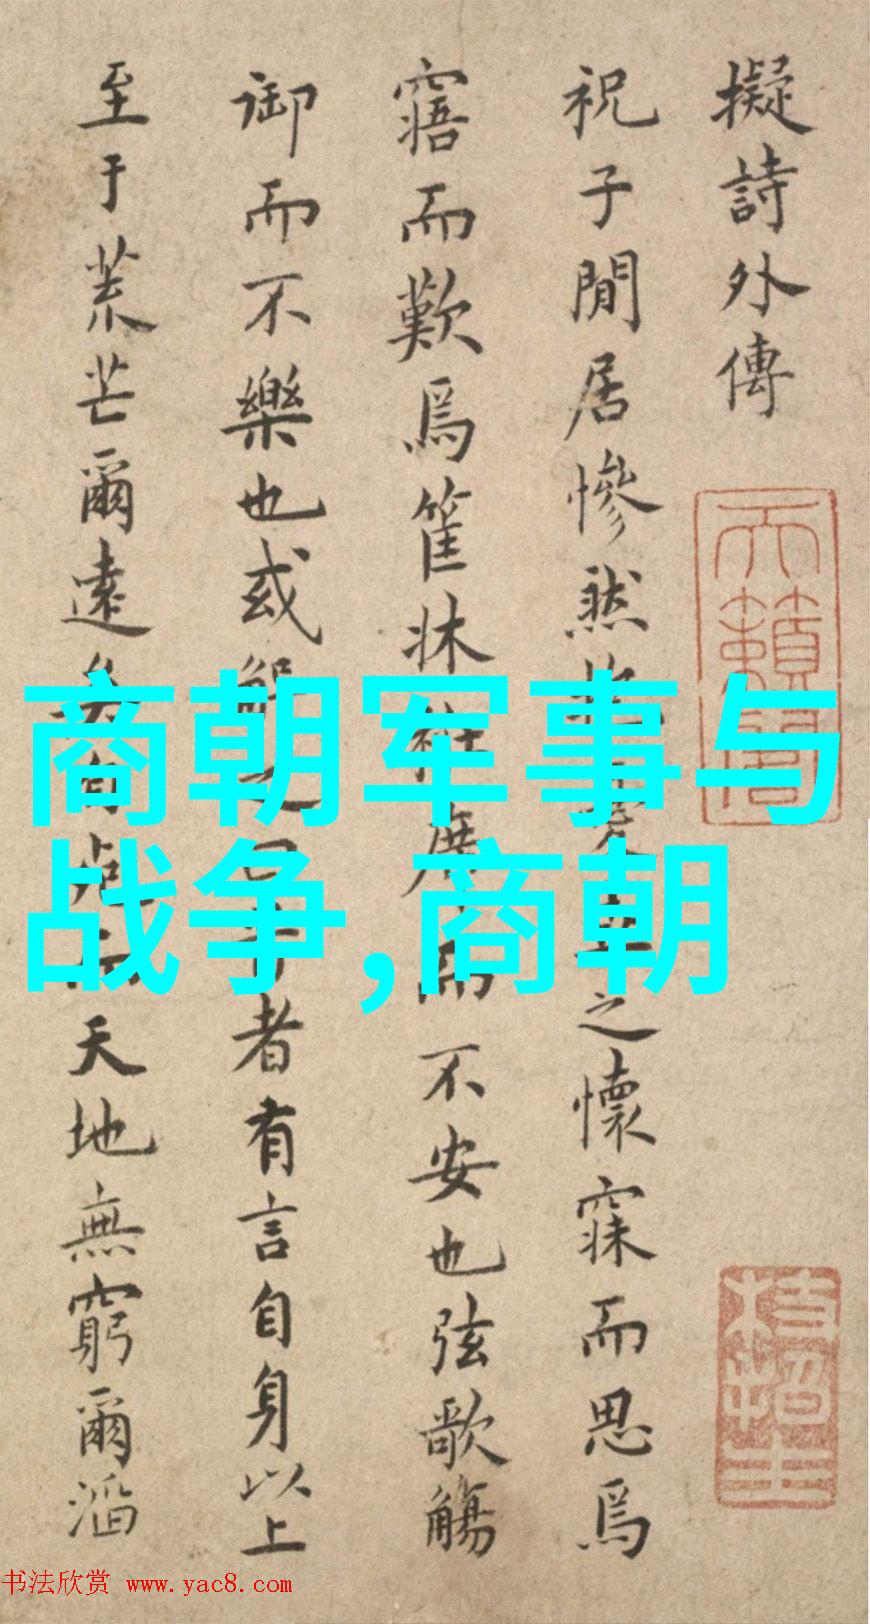 擬詩外傳
天籟閣
枝指生
祝子閒居慘然之懷寐而思焉
寤而歎焉筐牀而不安也弦歌觴
御而不樂也或解之者有言自身以上
至于荒芒爾遠矣天地無窮爾滔
商朝军事与
战争,商朝
书法欣赏 www.yac8.com